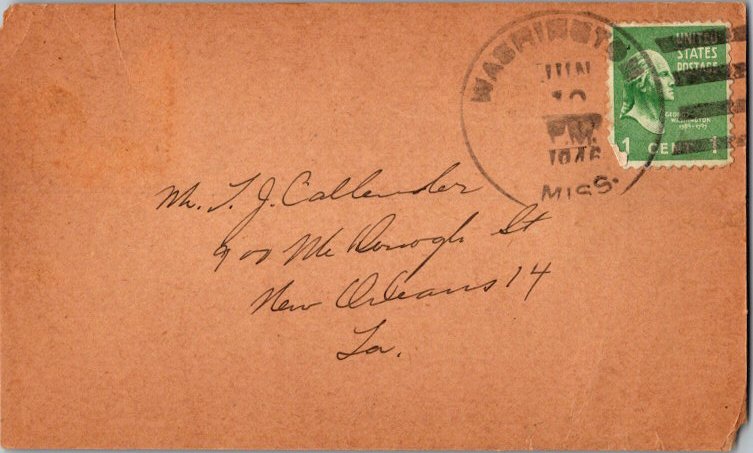 WASHINGTON
JUN
10
PM
1946
MISS.
UNITED
STATES
POSTAGE
GEORGE
WASHINGTON
1789-1797
1 CENT 1
Mr. T. J. Callender
900 Mc Donogh St
New Orleans 14
La.